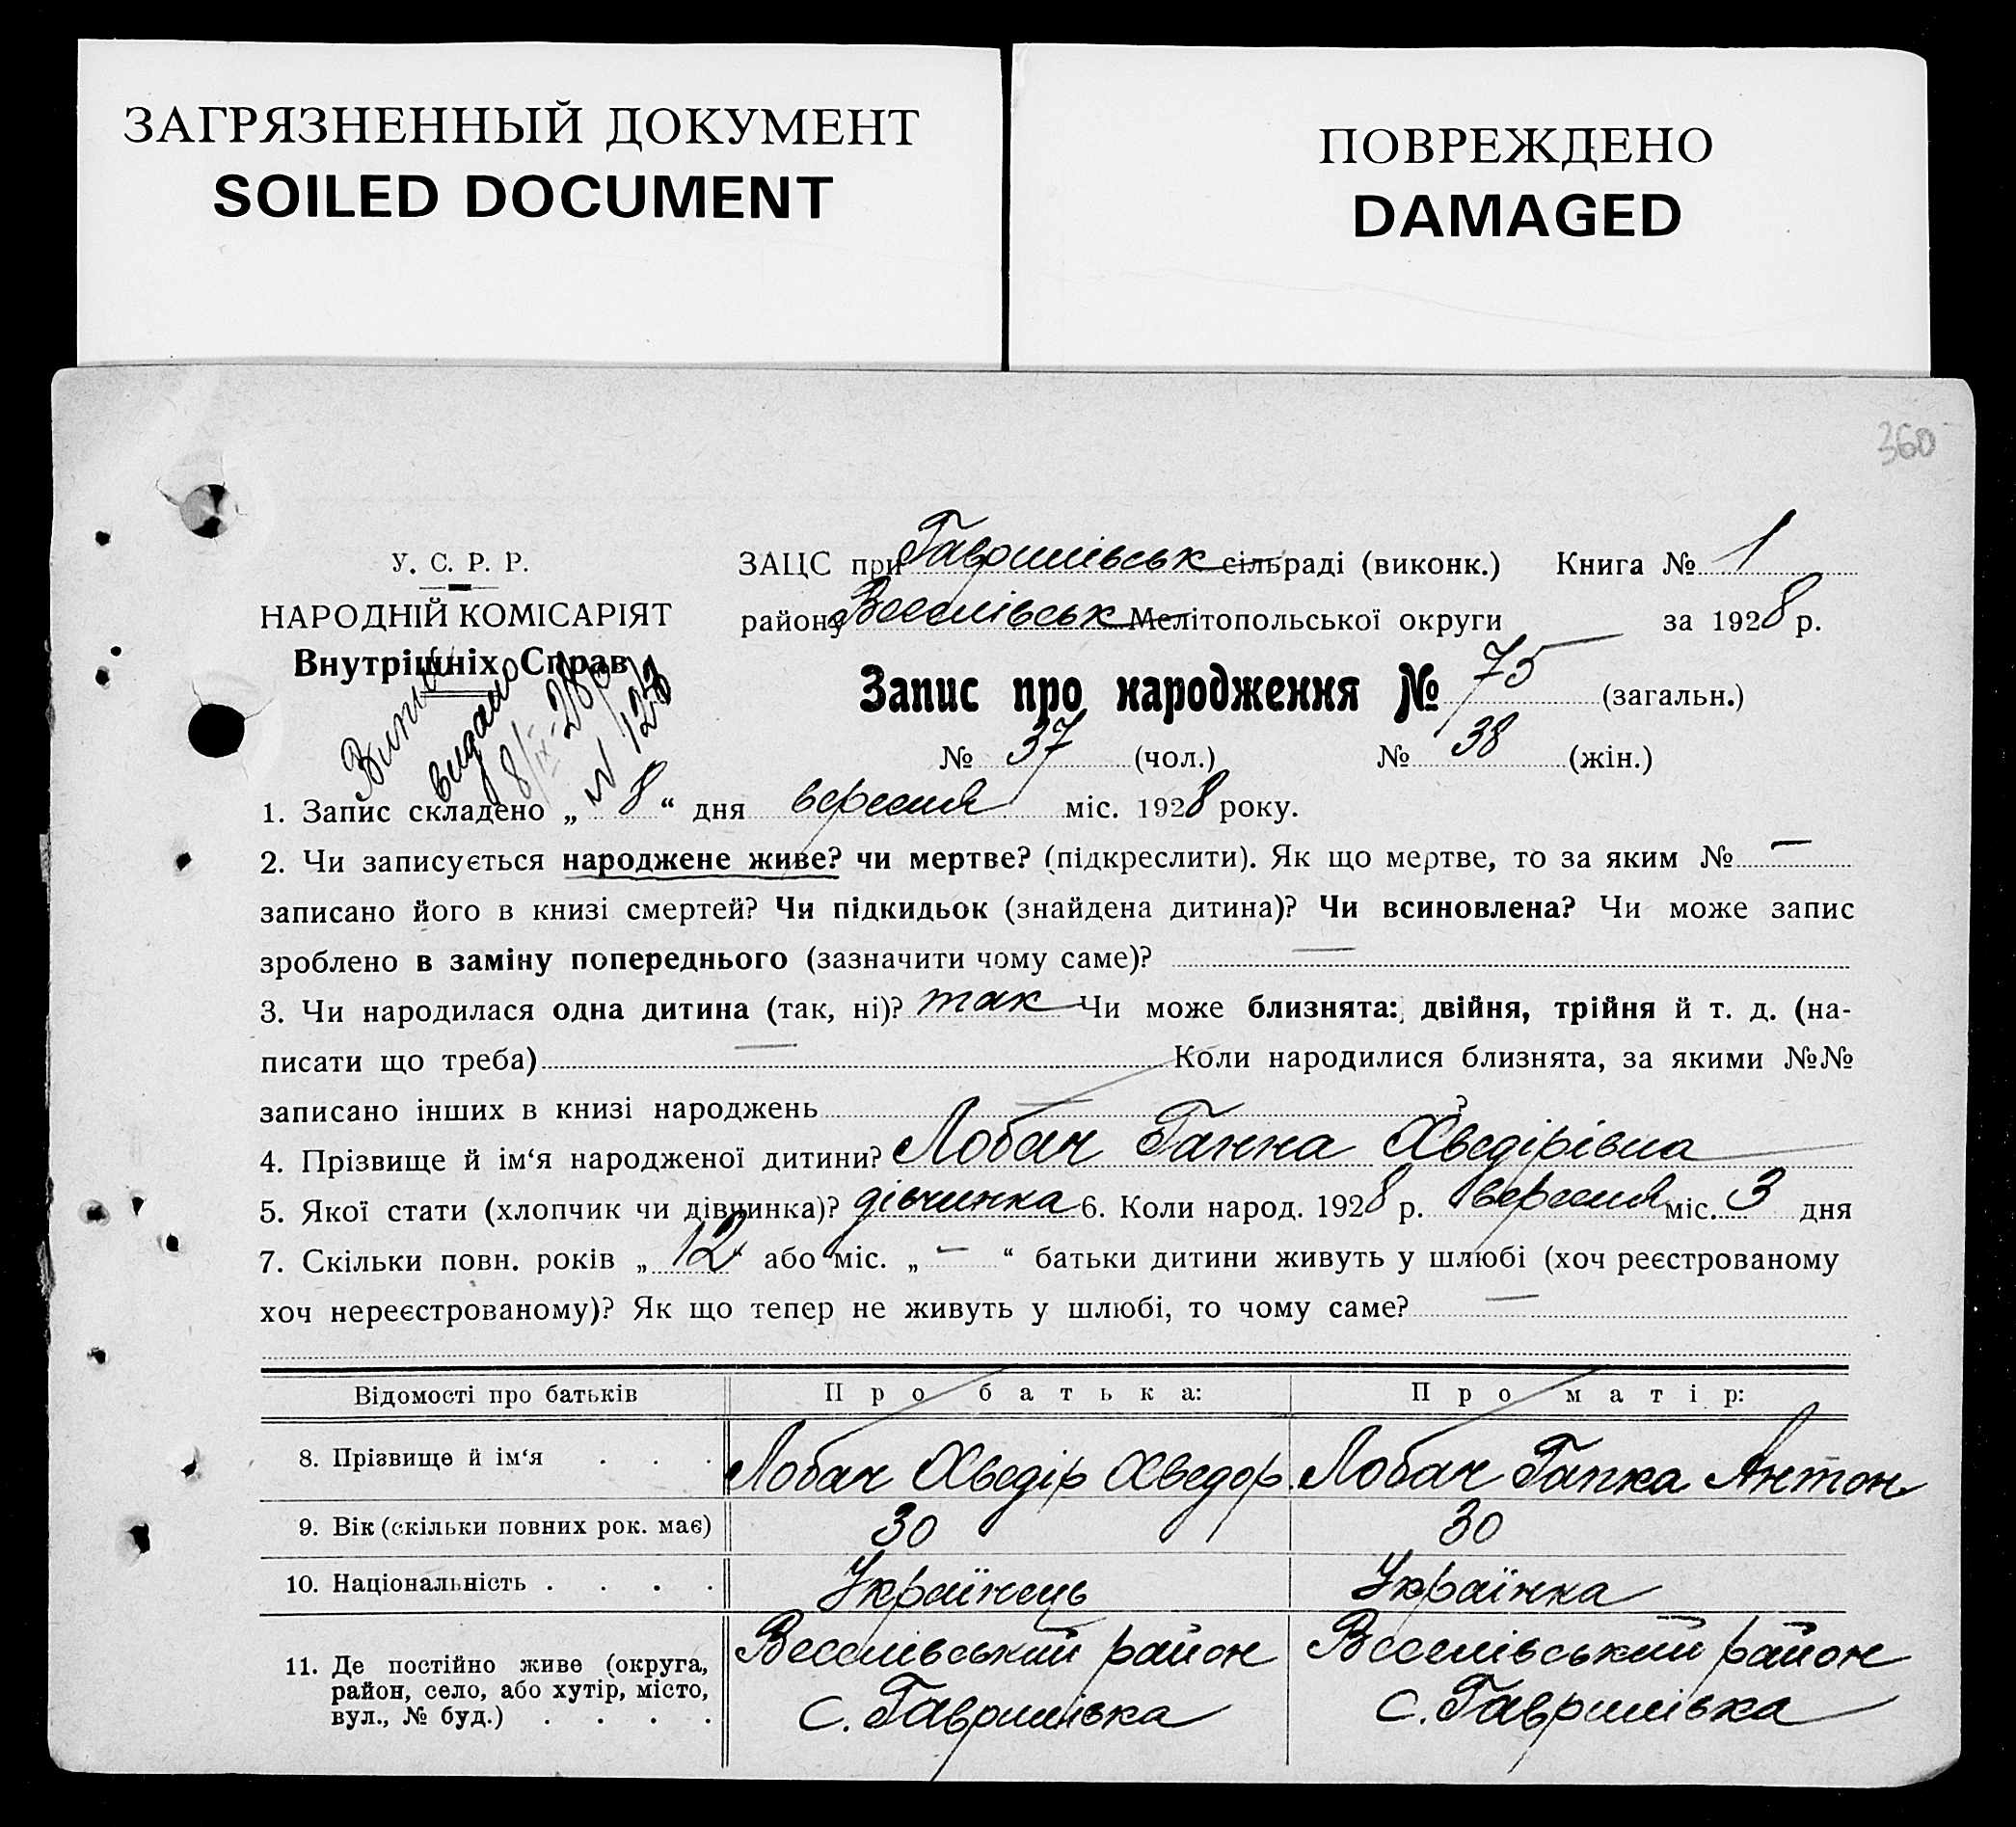 ЗАГРЯЗНЕННЫЙ ДОКУМЕНТ
SOILED DOCUMENT
ПОВРЕЖДЕНО
DAMAGED
360
У. С. Р. Р.
НАРОДНІЙ КОМІСАРІЯТ
Внутрішніх Справ
Випис
видано
8/IX-28р
N 123
ЗАЦС при Гаврилівськ сільраді (виконк.) Книга № 1
району Веселівськ Мелітопольської округи за 1928 р.
Запис про народження № 75 (загальн.)
№ 37 (чол.) № 38 (жін.)
1. Запис складено „ 8 “ дня вересня міс. 1928 року.
2. Чи записується народжене живе? чи мертве? (підкреслити). Як що мертве, то за яким № —
записано його в книзі смертей? Чи підкидьок (знайдена дитина)? Чи всиновлена? Чи може запис
зроблено в заміну попереднього (зазначити чому саме)? —
3. Чи народилася одна дитина (так, ні)? так Чи може близнята: двійня, трійня й т. д. (на-
писати що треба) — Коли народилися близнята, за якими №№
записано інших в книзі народжень ?
4. Прізвище й ім‘я народженої дитини? Лобач Ганна Хведірівна
5. Якої стати (хлопчик чи дівчинка)? дівчинка 6. Коли народ. 1928 р. вересня міс. 3 дня
7. Скільки повн. років „ 12 “ або міс. „ — “ батьки дитини живуть у шлюбі (хоч реєстрованому
хоч нереєстрованому)? Як що тепер не живуть у шлюбі, то чому саме? —
Відомості про батьків Про батька: Про матір:
8. Прізвище й ім‘я . . . Лобач Хведір Хведор. Лобач Гапка Антон
9. Вік (скільки повних рок. має) 30 30
10. Національність . . . . Українець Українка
11. Де постійно живе (округа, Веселівський район Веселівський район
район, село, або хутір, місто, с. Гаврилівка с. Гаврилівка
вул., № буд.) . . . .